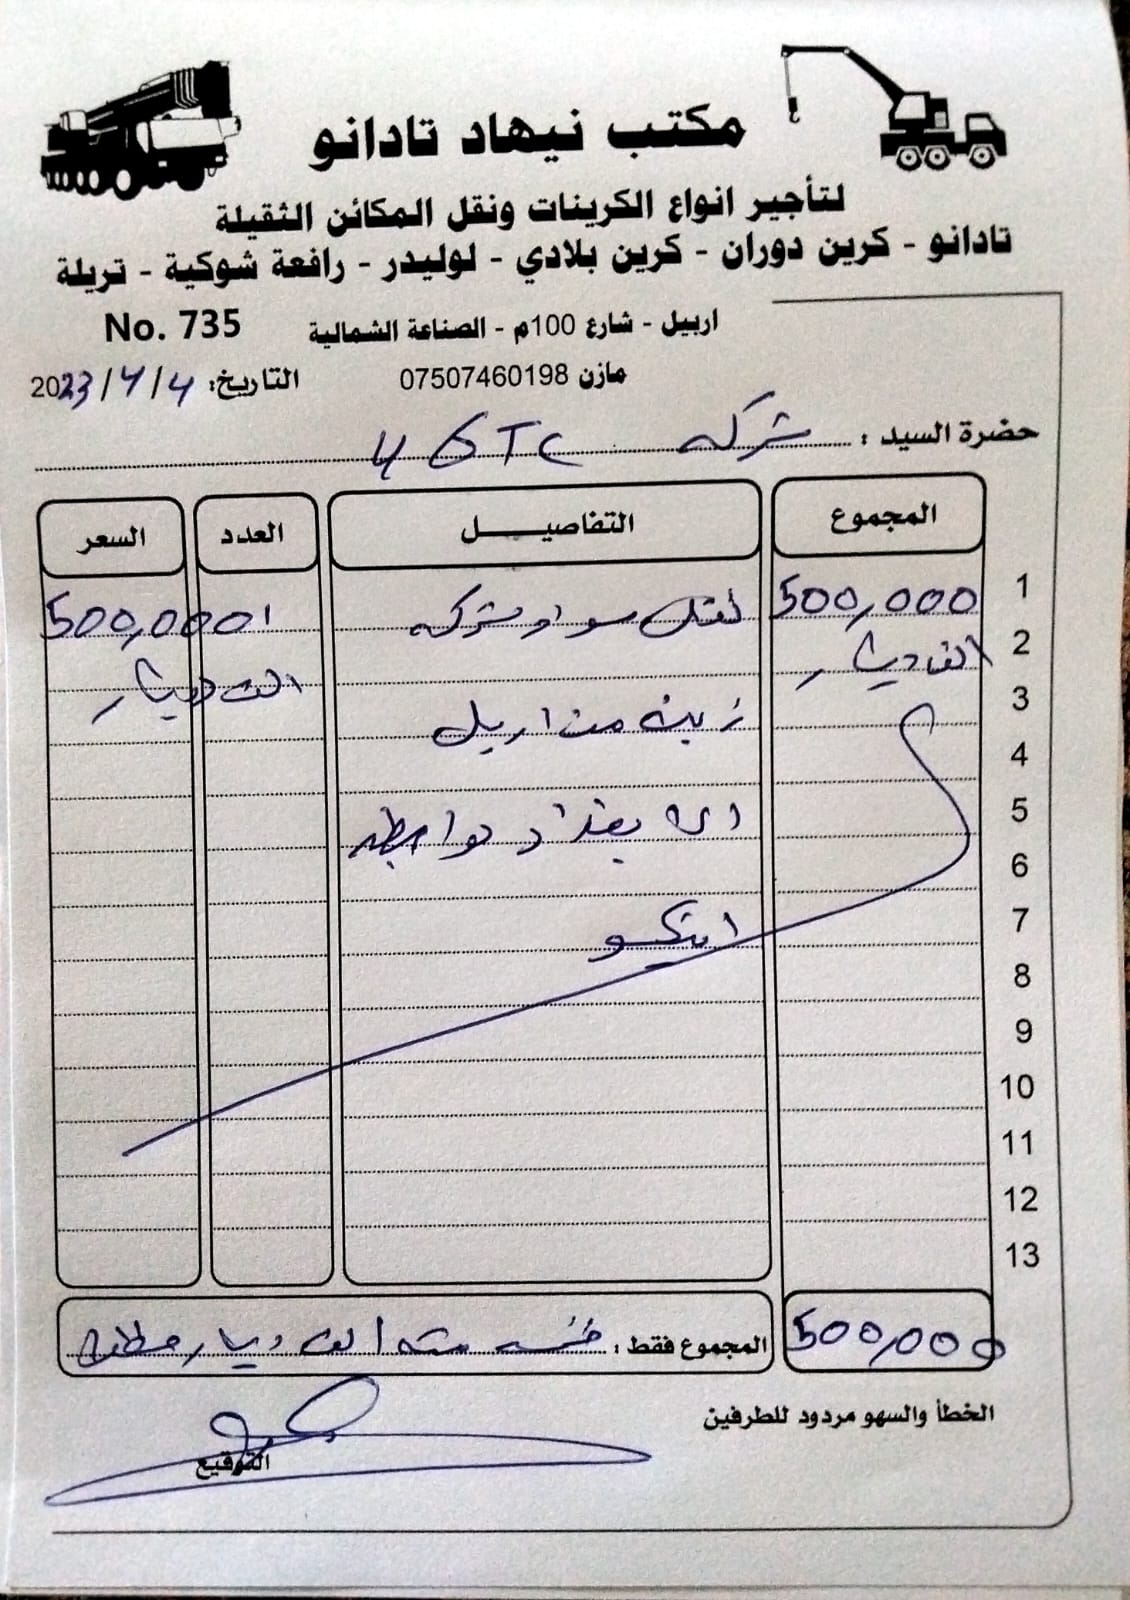 مكتب نيهاد تادانو
لتأجير انواع الكرينات ونقل المكائن الثقيلة
تادانو - كرين دوران - كرين بلادي - لوليدر - رافعة شوكية - تريلة
اربيل - شارع 100م - الصناعة الشمالية
No. 735
مازن 07507460198
التاريخ: 2023/4/4
حضرة السيد : شركه
المجموع التفاصيـــــل العدد السعر
1 500,000 لنقل مواد شركه 1 500,000
2 الف دينار الف دينار
3 زينه من اربيل
4
5 الى بغداد بواسطه
6
7
8
9
10
11
12
13
500,000 المجموع فقط : خمسه مئه الف دينار
الخطأ والسهو مردود للطرفين
التوقيع